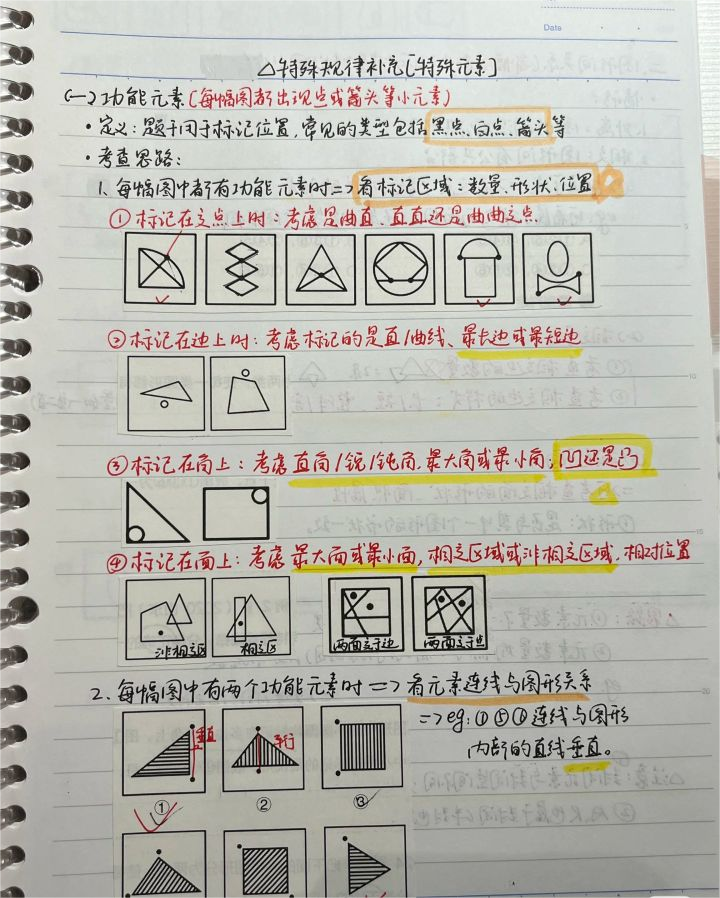 Date
△特殊规律补充[特殊元素]
(一)功能元素(每幅图都出现点或箭头等小元素)
·定义:题干用于标记位置,常见的类型包括黑点、白点、箭头等
·考查思路:
1、每幅图中都有功能元素时=>看标记区域:数量、形状、位置
①标记在交点上时:考虑是曲直、直直还是曲曲交点
②标记在边上时:考虑标记的是直/曲线、最长边或最短边
③标记在角上:考虑直角/锐/钝角,最大角或最小角;凹还是凸
④标记在面上:考虑最大面或最小面,相交区域或非相交区域,相对位置
非相交区 相交区 两面交于边 两面交于点
2、每幅图中有两个功能元素时=>看元素连线与图形关系
垂直 平行
=>eg:①⑤⑥连线与图形
内部的直线垂直。
① ② ③